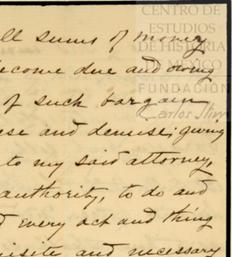 CENTRO DE
ESTUDIOS
DE HISTORIA
DE MÉXICO
FUNDACIÓN
Carlos Slim
all sums of money
become due and owing
of such bargain
ese and demise; giving
to my said attorney,
authority, to do and
d every act and thing
uisite and necessary